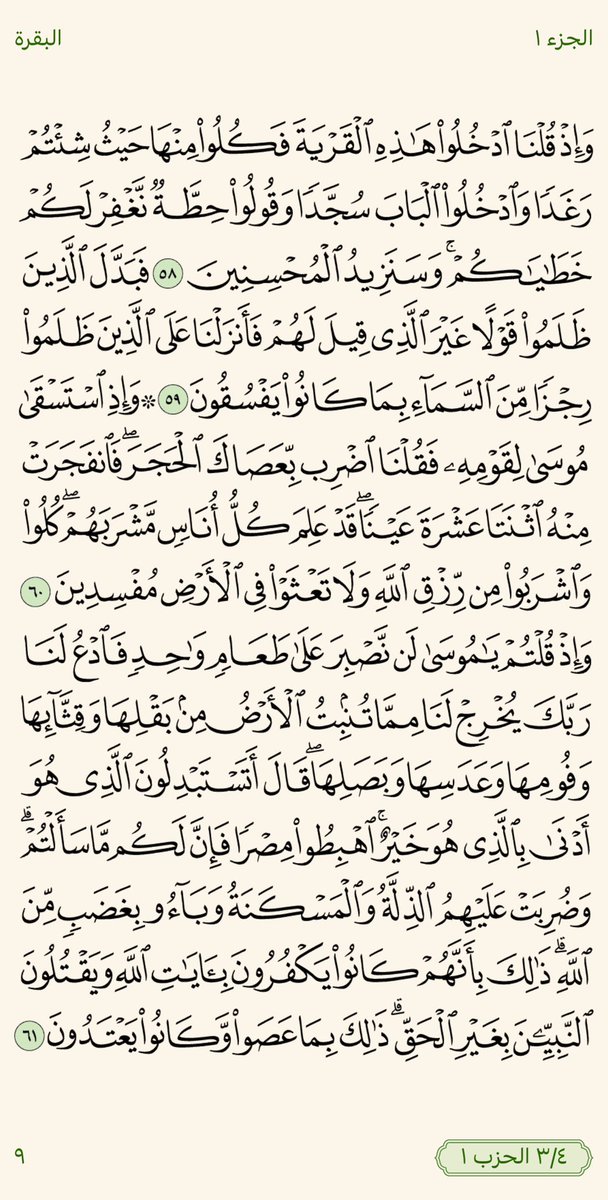 الجزء ١
البقرة
وَإِذۡ قُلۡنَا ٱدۡخُلُواْ هَٰذِهِ ٱلۡقَرۡيَةَ فَكُلُواْ مِنۡهَا حَيۡثُ شِئۡتُمۡ
رَغَدٗا وَٱدۡخُلُواْ ٱلۡبَابَ سُجَّدٗا وَقُولُواْ حِطَّةٞ نَّغۡفِرۡ لَكُمۡ
خَطَٰيَٰكُمۡۚ وَسَنَزِيدُ ٱلۡمُحۡسِنِينَ ٥٨ فَبَدَّلَ ٱلَّذِينَ
ظَلَمُواْ قَوۡلًا غَيۡرَ ٱلَّذِي قِيلَ لَهُمۡ فَأَنزَلۡنَا عَلَى ٱلَّذِينَ ظَلَمُواْ
رِجۡزٗا مِّنَ ٱلسَّمَآءِ بِمَا كَانُواْ يَفۡسُقُونَ ٥٩ ۞وَإِذِ ٱسۡتَسۡقَىٰ
مُوسَىٰ لِقَوۡمِهِۦ فَقُلۡنَا ٱضۡرِب بِّعَصَاكَ ٱلۡحَجَرَۖ فَٱنفَجَرَتۡ
مِنۡهُ ٱثۡنَتَا عَشۡرَةَ عَيۡنٗاۖ قَدۡ عَلِمَ كُلُّ أُنَاسٖ مَّشۡرَبَهُمۡۖ كُلُواْ
وَٱشۡرَبُواْ مِن رِّزۡقِ ٱللَّهِ وَلَا تَعۡثَوۡاْ فِي ٱلۡأَرۡضِ مُفۡسِدِينَ ٦٠
وَإِذۡ قُلۡتُمۡ يَٰمُوسَىٰ لَن نَّصۡبِرَ عَلَىٰ طَعَامٖ وَٰحِدٖ فَٱدۡعُ لَنَا
رَبَّكَ يُخۡرِجۡ لَنَا مِمَّا تُنۢبِتُ ٱلۡأَرۡضُ مِنۢ بَقۡلِهَا وَقِثَّآئِهَا
وَفُومِهَا وَعَدَسِهَا وَبَصَلِهَاۖ قَالَ أَتَسۡتَبۡدِلُونَ ٱلَّذِي هُوَ
أَدۡنَىٰ بِٱلَّذِي هُوَ خَيۡرٌۚ ٱهۡبِطُواْ مِصۡرٗا فَإِنَّ لَكُم مَّا سَأَلۡتُمۡۗ
وَضُرِبَتۡ عَلَيۡهِمُ ٱلذِّلَّةُ وَٱلۡمَسۡكَنَةُ وَبَآءُو بِغَضَبٖ مِّنَ
ٱللَّهِۗ ذَٰلِكَ بِأَنَّهُمۡ كَانُواْ يَكۡفُرُونَ بِـَٔايَٰتِ ٱللَّهِ وَيَقۡتُلُونَ
ٱلنَّبِيِّـۧنَ بِغَيۡرِ ٱلۡحَقِّۗ ذَٰلِكَ بِمَا عَصَواْ وَّكَانُواْ يَعۡتَدُونَ ٦١
٣/٤ الحزب ١
٩